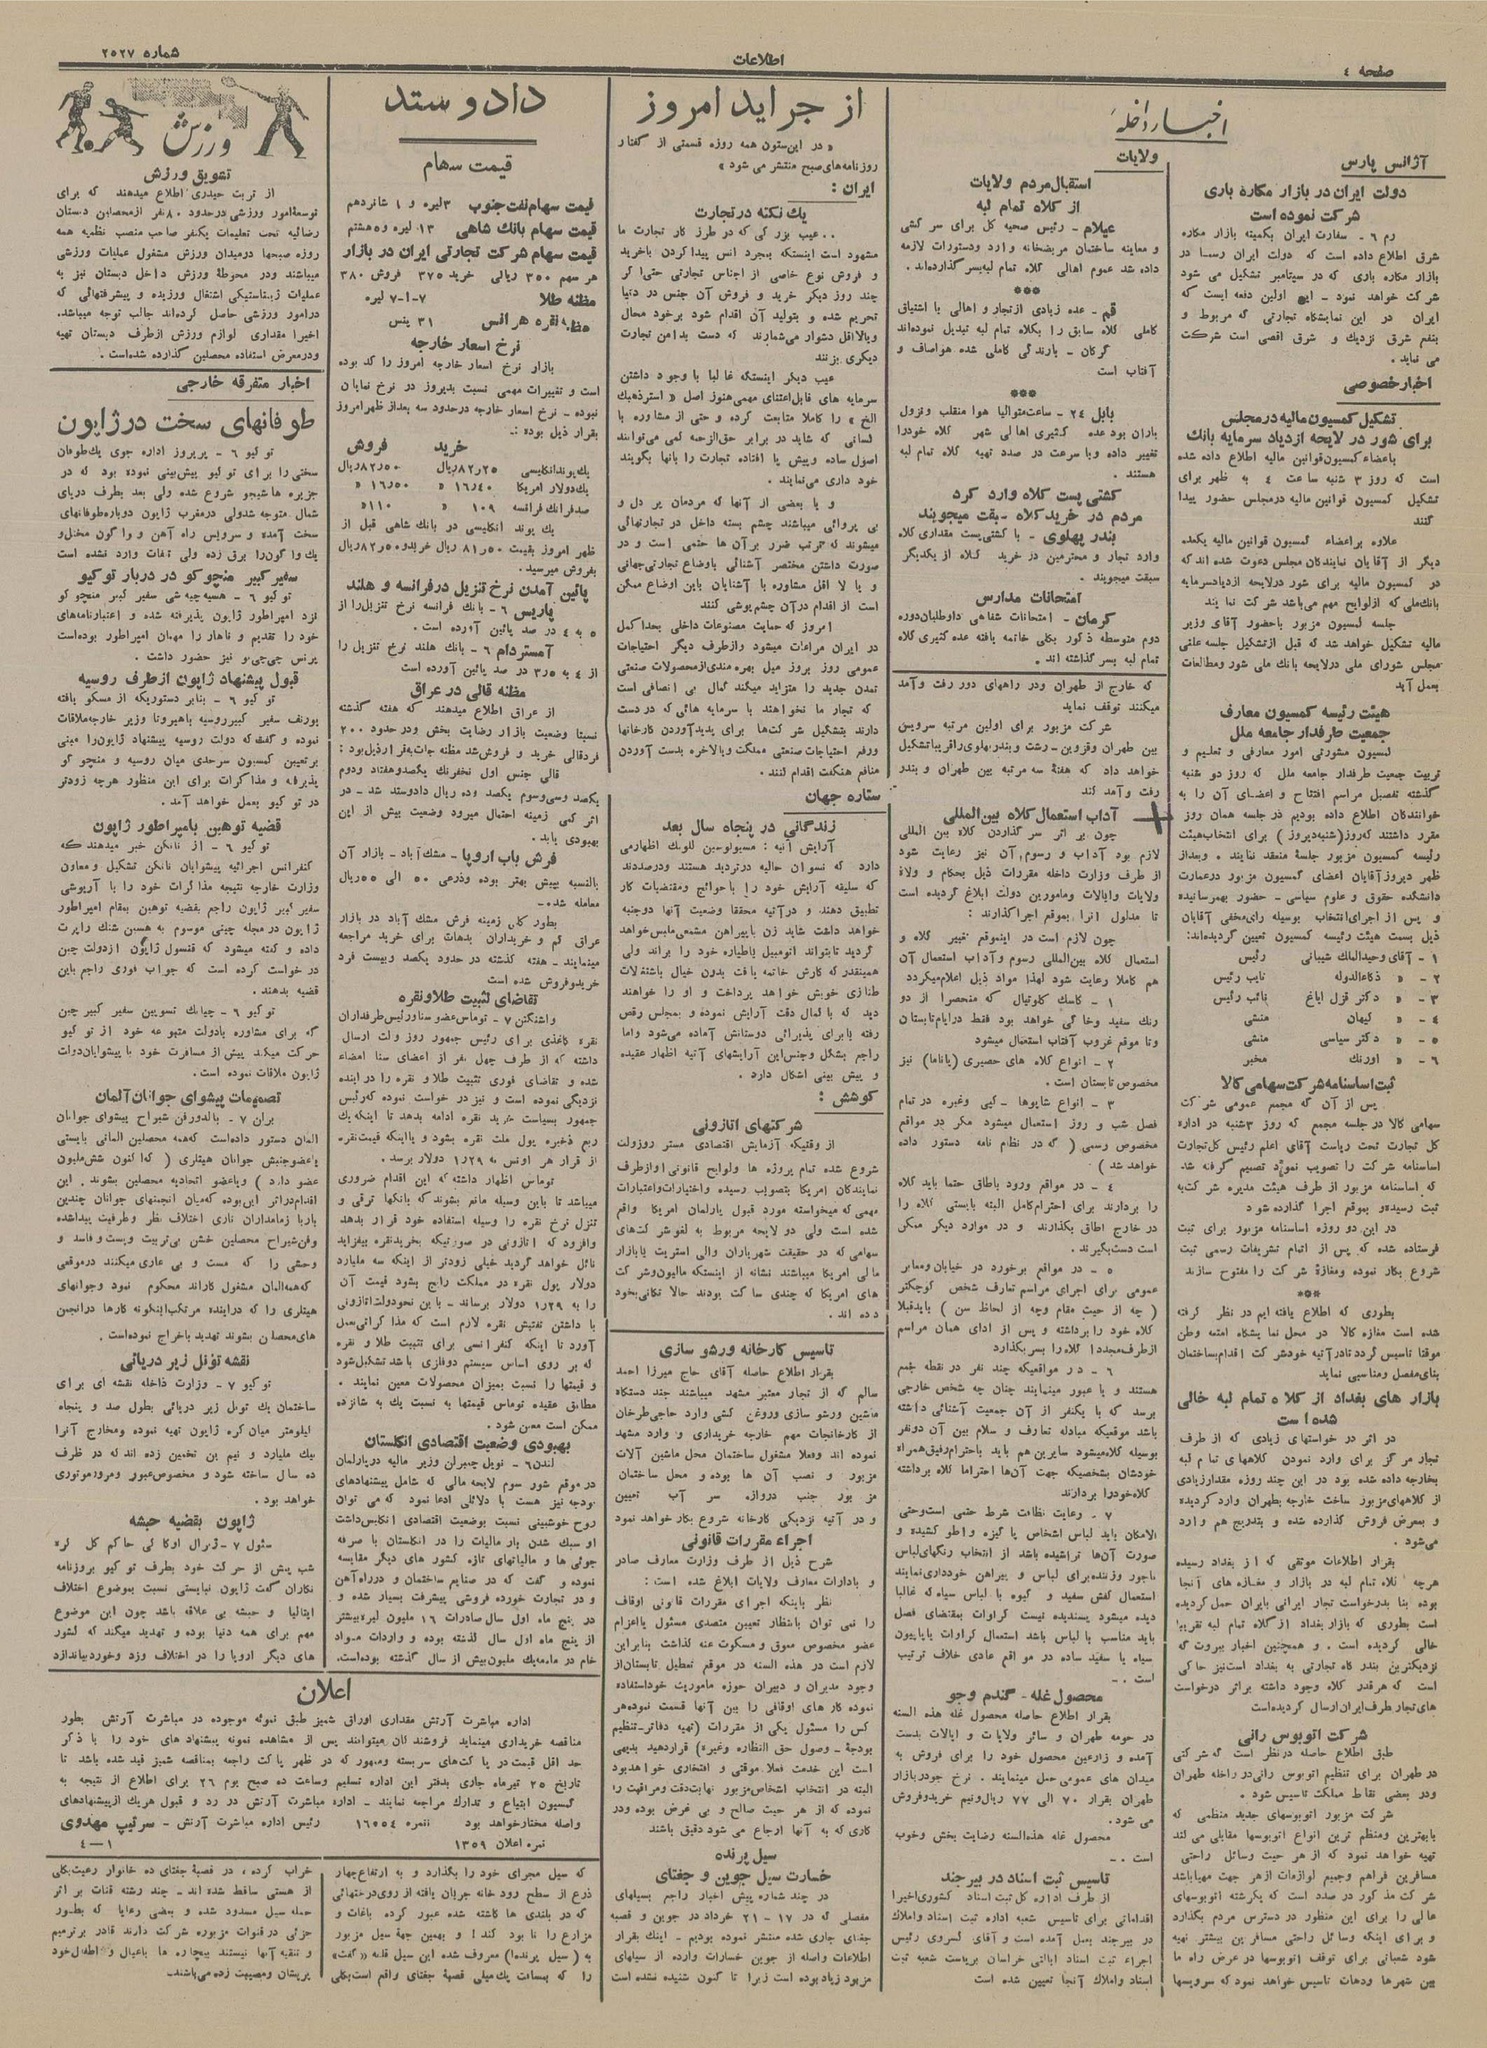 صفحه ٤
اطلاعات
شماره ۲۵۲۷
اخبار داخله
آژانس پارس
دولت ایران در بازار مکاره باری
شرکت نموده است
رم ٦ ـ سفارت ایران بکمیته بازار مکاره
شرق اطلاع داده است که دولت ایران رسما در
بازار مکاره باری که در سپتامبر تشکیل می شود
شرکت خواهد نمود ـ این اولین دفعه ایست که
ایران در این نمایشگاه تجارتی که مربوط و
بنفع شرق نزدیک و شرق اقصی است شرکت
می نماید .
اخبار خصوصی
تشکیل کمسیون مالیه در مجلس
برای شور در لایحه ازدیاد سرمایه بانک
باعضاء کمسیون قوانین مالیه اطلاع داده شده
است که روز ۳ شنبه ساعت ٤ به ظهر برای
تشکیل کمسیون قوانین مالیه در مجلس حضور پیدا
کنند
علاوه بر اعضاء کمسیون قوانین مالیه یکعده
دیگر از آقایان نمایندگان مجلس دعوت شده اند که
در کمسیون مالیه برای شور در لایحه ازدیاد سرمایه
بانک ملی که از لوایح مهم می باشد شرکت نمایند
جلسه کمسیون مزبور با حضور آقای وزیر
مالیه تشکیل خواهد شد که قبل از تشکیل جلسه علنی
مجلس شورای ملی در لایحه بانک ملی شور و مطالعات
بعمل آید
هیئت رئیسه کمسیون معارف
جمعیت طرفدار جامعه ملل
کمسیون مشورتی امور معارفی و تعلیم و
تربیت جمعیت طرفدار جامعه ملل که روز دو شنبه
گذشته تفصیل مراسم افتتاح و اعضای آن را به
خوانندگان اطلاع داده بودیم در جلسه همان روز
مقرر داشتند که روز (شنبه دیروز) برای انتخاب هیئت
رئیسه کمسیون مزبور جلسه منعقد نمایند . وبعد از
ظهر دیروز آقایان اعضای کمسیون مزبور در عمارت
دانشکده حقوق و علوم سیاسی ـ حضور بهمرسانیده
و پس از اجرای انتخاب بوسیله رای مخفی آقایان
ذیل بسمت هیئت رئیسه کمسیون تعیین گردیده اند :
۱ ـ آقای وحید الملک شیبانی رئیس
۲ ـ « ذکاء الدوله نایب رئیس
۳ ـ « دکتر قزل ایاغ نائب رئیس
٤ ـ « کیهان منشی
٥ ـ « دکتر سیاسی منشی
٦ ـ « اورنگ مخبر
ثبت اساسنامه شرکت سهامی کالا
پس از آن که مجمع عمومی شرکت
سهامی کالا در جلسه مجمع که روز ۳ شنبه در اداره
کل تجارت تحت ریاست آقای اعلم رئیس کل تجارت
اساسنامه شرکت را تصویب نمود تصمیم گرفته شد
که اساسنامه مزبور از طرف هیئت مدیره شرکت به
ثبت رسیده و بموقع اجرا گذارده شود
در این دو روزه اساسنامه مزبور برای ثبت
فرستاده شده که پس از اتمام تشریفات رسمی ثبت
شروع بکار نموده و مغازه شرکت را مفتوح سازند
***
بطوری که اطلاع یافته ایم در نظر گرفته
شده است مغازه کالا در محل نمایشگاه امتعه وطن
موقتا تاسیس گردد تا در آتیه خود شرکت اقدام بساختمان
بنای مفصل و مناسبی نماید
بازار های بغداد از کلاه تمام لبه خالی
شده است
در اثر در خواستهای زیادی که از طرف
تجار مرکز برای وارد نمودن کلاههای تمام لبه
بخارجه داده شده بود در این چند روزه مقدار زیادی
از کلاههای مزبور ساخت خارجه بطهران وارد گردیده
و بمعرض فروش گذارده شده و بتدریج هم وارد
می شود .
بقرار اطلاعات موثقی که از بغداد رسیده
هرچه کلاه تمام لبه در بازار و مغازه های آنجا
بوده بنا بدرخواست تجار ایرانی بایران حمل گردیده
است بطوری که بازار بغداد از کلاه تمام لبه تقریبا
خالی گردیده است . و همچنین اخبار بیروت که
نزدیکترین بندر گاه تجارتی به بغداد است نیز حاکی
است که هر قدر کلاه وجود داشته بر اثر درخواست
های تجار طرف ایران ارسال گردیده است
شرکت اتوبوس رانی
طبق اطلاع حاصله در نظر است که شرکتی
در طهران برای تنظیم اتوبوس رانی در داخله طهران
و در بعضی نقاط مملکت تاسیس شود .
شرکت مزبور اتوبوسهای جدید منظمی که
با بهترین و منظم ترین انواع اتوبوسها مقابلی می کند
تهیه خواهد نمود که از هر حیث وسائل راحتی
مسافرین فراهم و جمیع لوازمات از هر جهت مهیا باشد
شرکت مذکور در صدد است که یکرشته اتوبوسهای
عالی را برای این منظور در دسترس مردم بگذارد
و برای اینکه وسائل راحتی مسافرین بیشتر تهیه
شود شعباتی برای توقف اتوبوسها در عرض راه ما
بین شهرها و دهات تاسیس خواهد نمود که سرویسها
ولایات
استقبال مردم ولایات
از کلاه تمام لبه
عیلام ـ رئیس صحیه کل برای سرکشی
و معاینه ساختمان مریضخانه وارد و دستورات لازمه
داده شد عموم اهالی کلاه تمام لبه بسر گذارده اند .
***
قم ـ عده زیادی از تجار و اهالی با اشتیاق
کاملی کلاه سابق را بکلاه تمام لبه تبدیل نموده اند
گرگان ـ بارندگی کاملی شده هوا صاف و
آفتاب است
***
بابل ۲٤ ـ ساعت متوالیا هوا منقلب و نزول
باران بود عده کثیری اهالی شهر کلاه خود را
تغییر داده و با سرعت در صدد تهیه کلاه تمام لبه
هستند .
کشتی پست کلاه وارد کرد
مردم در خرید کلاه سبقت میجویند
بندر پهلوی ـ با کشتی پست مقداری کلاه
وارد تجار و محترمین در خرید کلاه از یکدیگر
سبقت میجویند .
امتحانات مدارس
کرمان ـ امتحانات شفاهی داوطلبان دوره
دوم متوسطه ذکور بکلی خاتمه یافته عده کثیری کلاه
تمام لبه بسر گذاشته اند .
که خارج از طهران و در راههای دور رفت و آمد
میکنند توقف نماید
شرکت مزبور برای اولین مرتبه سرویس
بین طهران و قزوین ـ رشت و بندر پهلوی را قریبا تشکیل
خواهد داد که هفته سه مرتبه بین طهران و بندر
رفت و آمد کند
آداب استعمال کلاه بین المللی
چون بر اثر سر گذاردن کلاه بین المللی
لازم بود آداب و رسوم آن نیز رعایت شود
از طرف وزارت داخله مقررات ذیل بحکام و ولاة
ولایات و ایالات و مامورین دولت ابلاغ گردیده است
تا مدلول آنرا بموقع اجرا گذارند :
چون لازم است در اینموقع تغییر کلاه و
استعمال کلاه بین المللی رسوم و آداب استعمال آن
هم کاملا رعایت شود لهذا مواد ذیل اعلام میگردد
۱ ـ کاسک کلونیال که منحصرا از دو
رنگ سفید و خاکی خواهد بود فقط در ایام تابستان
و تا موقع غروب آفتاب استعمال میشود
۲ ـ انواع کلاه های حصیری (پاناما) نیز
مخصوص تابستان است .
۳ ـ انواع شاپوها ـ کپی و غیره در تمام
فصل شب و روز استعمال میشود مگر در مواقع
مخصوص رسمی ( که در نظام نامه دستور داده
خواهد شد )
٤ ـ در مواقع ورود باطاق حتما باید کلاه
را بردارند برای احترام کامل البته بایستی کلاه را
در خارج اطاق بگذارند و در موارد دیگر ممکن
است دست بگیرند .
٥ ـ در مواقع برخورد در خیابان و معابر
عمومی برای اجرای مراسم تعارف شخص کوچکتر
( چه از حیث مقام و چه از لحاظ سن ) باید قبلا
کلاه خود را برداشته و پس از ادای همان مراسم
از طرف مجددا کلاه را بسر بگذارد
٦ ـ در مواقعیکه چند نفر در نقطه جمع
هستند و یا عبور مینمایند چنان چه شخص خارجی
برسد که با یکنفر از آن جمعیت آشنائی داشته
باشد موقعیکه مبادله تعارف و سلام بین آن دو نفر
بوسیله کلاه میشود سایرین هم باید باحترام رفیق همراه
خودشان بشخصیکه جهت آنها احتراما کلاه برداشته
کلاه خود را بردارند
۷ ـ رعایت نظافت شرط حتمی است و حتی
الامکان باید لباس اشخاص پاکیزه و اطو کشیده و
صورت آنها تراشیده باشد از انتخاب رنگهای لباس
ناجور و زننده برای لباس و پیراهن خود داری نمایند
استعمال کفش سفید و گیوه با لباس سیاه که غالبا
دیده میشود پسندیده نیست کراوات بمقتضای فصل
باید مناسب با لباس باشد استعمال کراوات یا پاپیون
سیاه یا سفید ساده در مواقع عادی خلاف ترتیب
است . ـ
محصول غله ـ گندم و جو
بقرار اطلاع حاصله محصول غله هذه السنه
در حومه طهران و سائر ولایات و ایالات بدست
آمده و زارعین محصول خود را برای فروش به
میدان های عمومی حمل مینمایند . نرخ جو در بازار
طهران بقرار ۷۰ الی ۷۷ ریال و نیم خرید و فروش
می شود .
محصول غله هذه السنه رضایت بخش و خوب
است . ـ
تاسیس ثبت اسناد در بیرجند
از طرف اداره کل ثبت اسناد کشوری اخیرا
اقداماتی برای تاسیس شعبه اداره ثبت اسناد و املاک
در بیرجند بعمل آمده است و آقای کسروی رئیس
اجراء ثبت اسناد ایالتی خراسان بریاست شعبه ثبت
اسناد و املاک آنجا تعیین شده است
از جراید امروز
« در این ستون همه روزه قسمتی از گفتار
روزنامه های صبح منتشر می شود »
ایران :
یک نکته در تجارت
.. عیب بزرگی که در طرز کار تجارت ما
مشهود است اینستکه بمجرد انس پیدا کردن با خرید
و فروش نوع خاصی از اجناس تجارتی حتی اگر
چند روز دیگر خرید و فروش آن جنس در دنیا
تحریم شده و بتولید آن اقدام شود برخود محال
و یا لااقل دشوار می شمارند که دست بدامن تجارت
دیگری بزنند
عیب دیگر اینستکه غالبا با وجود داشتن
سرمایه های قابل اعتنای مهمی هنوز اصل « استر ذهبک
الخ » را کاملا متابعت کرده و حتی از مشاوره با
کسانی که شاید در برابر حق الزحمه کمی می توانند
اصول ساده و پیش پا افتاده تجارت را بآنها بگویند
خود داری می نمایند .
و یا بعضی از آنها که مردمان پر دل و
بی پروائی میباشند چشم بسته داخل در تجارتهائی
میشوند که ترتب ضرر بر آن ها حتمی است و در
صورت داشتن مختصر آشنائی باوضاع تجارتی جهانی
و یا لا اقل مشاوره با آشنایان باین اوضاع ممکن
است از اقدام در آن چشم پوشی کنند
امروز که حمایت مصنوعات داخلی بحد اکمل
در ایران مراعات میشود و از طرف دیگر احتیاجات
عمومی روز بروز میل بهره مندی از محصولات صنعتی
تمدن جدید را متزاید میکند کمال بی انصافی است
که تجار ما نخواهند با سرمایه هائی که در دست
دارند بتشکیل شرکت ها برای پدید آوردن کارخانها
و رفع احتیاجات صنعتی مملکت و بالاخره بدست آوردن
منافع هنگفت اقدام کنند .
ستاره جهان
زندگانی در پنجاه سال بعد
آرایش آتیه : مسیو لوسین للونگ اظهار می
دارد که نسوان حالیه در تردید هستند و درصددند
که سلیقه آرایش خود را با حوائج و مقتضیات کار
تطبیق دهند . و در آتیه محققا وضعیت آنها دو جنبه
خواهد داشت شاید زن با پیراهن مشمعی ملبس خواهد
گردید تا بتواند اتومبیل یا طیاره خود را براند ولی
همینقدر که کارش خاتمه یافت بدون خیال باشتغالات
طنازی خویش خواهد پرداخت و او را خواهند
دید که با کمال دقت آرایش نموده و بمجلس رقص
رفته یا برای پذیرائی دوستانش آماده می شود و اما
راجع بشکل و جنس این آرایشهای آتیه اظهار عقیده
و پیش بینی اشکال دارد .
کوشش :
شرکتهای اتازونی
از وقتیکه آزمایش اقتصادی مستر روزولت
شروع شده تمام پروژه ها و لوایح قانونی او از طرف
نمایندگان امریکا بتصویب رسیده و اختیارات و اعتبارات
مهمی که میخواسته مورد قبول پارلمان امریکا واقع
شده است ولی دو لایحه مربوط به لغو شرکت های
سهامی که در حقیقت شهریاران والی استریت یا بازار
مالی امریکا میباشند نشانه از اینستکه مالیون و شرکت
های امریکا که چندی ساکت بودند حالا تکانی بخود
داده اند .
تاسیس کارخانه ورشو سازی
بقرار اطلاع حاصله آقای حاج میرزا احمد
سالم که از تجار معتبر مشهد میباشند چند دستگاه
ماشین ورشو سازی و روغن کشی وارد حاجی طرخان
از کارخانجات مهم خارجه خریداری و وارد مشهد
نموده اند و فعلا مشغول ساختمان محل ماشین آلات
مزبور و نصب آن ها بوده و محل ساختمان
مزبور جنب دروازه سر آب تعیین
و در آتیه نزدیکی کارخانه شروع بکار خواهد نمود
اجراء مقررات قانونی
شرح ذیل از طرف وزارت معارف صادر
و بادارات معارف ولایات ابلاغ شده است :
نظر باینکه اجرای مقررات قانونی اوقاف
را نمی توان بانتظار تعیین متصدی مسئول یا اعزام
عضو مخصوص معوق و مسکوت عنه گذاشت بنابراین
لازم است در هذه السنه در موقع تعطیل تابستان از
وجود مدیران و دبیران حوزه ماموریت خود استفاده
نموده کار های اوقافی را بین آنها قسمت نموده هر
کس را مسئول یکی از مقررات (تهیه دفاتر ـ تنظیم
بودجه ـ وصول حق النظاره و غیره) قرار دهید بدیهی
است این خدمت فعلا موقتی و افتخاری خواهد بود
البته در انتخاب اشخاص مزبور نهایت دقت و مراقبت را
نموده که از هر حیث صالح و بی غرض بوده و در
کاری که به آنها ارجاع می شود دقیق باشند
سیل پرنده
خسارت سیل جوین و جغتای
در چند شماره پیش اخبار راجع بسیلهای
مفصلی که در ۱۷ ـ ۲۱ خرداد در جوین و قصبه
جغتای جاری شده منتشر نموده بودیم ـ اینک بقرار
اطلاعات واصله از جوین خسارات وارده از سیلهای
مزبور زیاد بوده است زیرا تا کنون شنیده نشده است
که سیل مجرای خود را بگذارد و به ارتفاع چهار
ذرع از سطح رود خانه جریان یافته از روی درختهائی
که در بلندی ها کاشته شده عبور کرده باغات و
مزارع را نابود کند ! و بهمین جهة سیل مزبور
به ( سیل پرنده) معروف شده این سیل قلعه «گفت»
را که بمسافت یک میلی قصبه جغتای واقع است بکلی
خراب کرده ، در قصبه جغتای ده خانوار رعیت بکلی
از هستی ساقط شده اند ـ چند رشته قنات بر اثر
حمله سیل مسدود شده و بعضی رعایا که بطور
جزئی در قنوات مزبوره شرکت دارند قادر بر ترمیم
و تنقیه آنها نیستند بیچاره ها با عیال و اطفال خود
پریشان و مصیبت زده می باشند ـ
داد و ستد
قیمت سهام
قیمت سهام نفت جنوب ۳ لیره و ۱ شانزدهم
قیمت سهام بانک شاهی ۱۳ لیره و ٥ هشتم
قیمت سهام شرکت تجارتی ایران در بازار
هر سهم ۳٥۰ ریالی خرید ۳۷٥ فروش ۳۸۰
مظنه طلا ۷-۱-۷ لیره
مظنه نقره هر انس ۳۱ پنس
نرخ اسعار خارجه
بازار نرخ اسعار خارجه امروز راکد بوده
است و تغییرات مهمی نسبت بدیروز در نرخ نمایان
نبوده ـ نرخ اسعار خارجه در حدود سه بعد از ظهر امروز
بقرار ذیل بوده :ـ
خرید فروش
یک پوند انگلیسی ۸۲٫۲٥ ریال ۸۲٫٥۰ ریال
یک دولار امریکا ۱٦٫٤۰ « ۱٦٫٥۰ «
صد فرانک فرانسه ۱۰۹ « ۱۱۰ «
یک پوند انگلیسی در بانک شاهی قبل از
ظهر امروز بقیمت ۸۱٫٥۰ ریال خرید و ۸۲٫٥۰ ریال
بفروش میرسید .
پائین آمدن نرخ تنزیل در فرانسه و هلند
پاریس ٦ ـ بانک فرانسه نرخ تنزیل را از
٥ به ٤ در صد پائین آورده است .
آمستردام ٦ ـ بانک هلند نرخ تنزیل را
از ٤ به ۳٫٥ در صد پائین آورده است
مظنه قالی در عراق
از عراق اطلاع میدهند که هفته گذشته
نسبتا وضعیت بازار رضایت بخش و در حدود ۲۰۰
فرد قالی خرید و فروش شد مظنه جات بقرار ذیل بود :
قالی جنس اول نخفرنک یکصد و هفتاد و دوم
یکصد و سی و سوم یکصد و ده ریال داد و ستد شد ـ در
اثر کمی زمینه احتمال میرود وضعیت بیش از این
بهبودی یابد .
فرش باب اروپا ـ مشک آباد ـ بازار آن
بالنسبه بپیش بهتر بوده و ذرعی ٥۰ الی ٥٥ ریال
معامله شده ـ
بطور کلی زمینه فرش مشک آباد در بازار
عراق کم و خریداران بدهات برای خرید مراجعه
مینمایند ـ هفته گذشته در حدود یکصد و بیست فرد
خرید و فروش شده است
تقاضای تثبیت طلا و نقره
واشنگتن ۷ ـ توماس عضو سنا و رئیس طرفداران
نقره کاغذی برای رئیس جمهور روزولت ارسال
داشته که از طرف چهل نفر از اعضای سنا امضاء
شده و تقاضای فوری تثبیت طلا و نقره را در اینده
نزدیکی نموده است و نیز در خواست نموده که رئیس
جمهور بسیاست خرید نقره ادامه بدهد تا اینکه یک
ربع ذخیره پول ملت نقره بشود و یا اینکه قیمت نقره
از قرار هر اونس به ۱٫۲۹ دولار برسد .
توماس اظهار داشته که این اقدام ضروری
میباشد تا باین وسیله مانع بشوند که بانکها ترقی و
تنزل نرخ نقره را وسیله استفاده خود قرار بدهد
و افزود که اتازونی در صورتیکه بخرید نقره بیفزاید
نائل خواهد گردید خیلی زودتر از اینکه سه ملیارد
دولار پول نقره در مملکت رایج بشود قیمت آن
را به ۱٫۲۹ دولار برساند ـ با این نحو دولت اتازونی
با داشتن تفتیش نقره لازم است که مذاکراتی بعمل
آورد تا اینکه کنفرانسی برای تثبیت طلا و نقره
که بر روی اساس سیستم دو فلزی باشد تشکیل شود
و قیمتها را نسبت بمیزان محصولات معین نمایند .
مطابق عقیده توماس قیمتها به نسبت یک به شانزده
ممکن است معین شود .
بهبودی وضعیت اقتصادی انگلستان
لندن ٦ ـ نویل چمبرلن وزیر مالیه در پارلمان
در موقع شور سوم لایحه مالی که شامل پیشنهادهای
بودجه نیز هست با دلائلی ادعا نمود که می توان
روح خوشبینی نسبت بوضعیت اقتصادی انگلیس داشت
او سبک شدن بار مالیات را در انگلستان با صرفه
جوئی ها و مالیاتهای تازه کشور های دیگر مقایسه
نموده و گفت که در صنایع ساختمان و در راه آهن
و در تجارت خورده فروشی پیشرفت بسیار شده و
در پنج ماه اول سال صادرات ۱٦ ملیون لیره بیشتر
از پنج ماه اول سال گذشته بوده و واردات مواد
خام در ماه مه یک ملیون بیش از سال گذشته بوده است .
ورزش
تشویق ورزش
از تربت حیدری اطلاع میدهند که برای
توسعه امور ورزشی در حدود ۸۰ نفر از محصلین دبستان
رضائیه تحت تعلیمات یکنفر صاحب منصب نظمیه همه
روزه صبحها در میدان ورزش مشغول عملیات ورزشی
میباشند و در محوطه ورزش داخل دبستان نیز به
عملیات ژیمناستیکی اشتغال ورزیده و پیشرفتهائی که
در امور ورزشی حاصل کرده اند جالب توجه میباشد .
اخیرا مقداری لوازم ورزش از طرف دبستان تهیه
و در معرض استفاده محصلین گذارده شده است .
اخبار متفرقه خارجی
طوفانهای سخت در ژاپون
توکیو ٦ ـ پریروز اداره جوی یک طوفان
سختی را برای توکیو پیش بینی نموده بود که در
جزیره هاشیجو شروع شده ولی بعد بطرف دریای
شمال متوجه شد ولی در مغرب ژاپون دوباره طوفانهای
سخت آمده و سرویس راه آهن و واگون مختل و
یک واگون را برق زده ولی تلفات وارد نشده است
سفیر کبیر منچوکو در دربار توکیو
توکیو ٦ ـ هسیه چیه شی سفیر کبیر منچوکو
نزد امپراطور ژاپون پذیرفته شده و اعتبار نامه های
خود را تقدیم و ناهار را مهمان امپراطور بوده است
پرنس چی چی بو نیز حضور داشت .
قبول پیشنهاد ژاپون از طرف روسیه
توکیو ٦ ـ بنابر دستوریکه از مسکو یافته
یورنف سفیر کبیر روسیه با هیروتا وزیر خارجه ملاقات
نموده و گفت که دولت روسیه پیشنهاد ژاپون را مبنی
بر تعیین کمسیون سرحدی میان روسیه و منچوکو
پذیرفته و مذاکرات برای این منظور هرچه زودتر
در توکیو بعمل خواهد آمد .
قضیه توهین بامپراطور ژاپون
توکیو ٦ ـ از نانکن خبر میدهند که
کنفرانس اجرائیه پیشوایان نانکن تشکیل و معاون
وزارت خارجه نتیجه مذاکرات خود را با آریوشی
سفیر کبیر ژاپون راجع بقضیه توهین بمقام امپراطور
ژاپون در مجله چینی موسوم به هسین شنک راپرت
داده و گفته میشود که قنسول ژاپون از دولت چین
در خواست کرده است که جواب فوری راجع باین
قضیه بدهند .
توکیو ٦ ـ چیانک تسویین سفیر کبیر چین
که برای مشاوره با دولت متبوعه خود از توکیو
حرکت میکند پیش از مسافرت خود با پیشوایان دولت
ژاپون ملاقات نموده است .
تصمیمات پیشوای جوانان آلمان
برلن ۷ ـ بالدور فن شیراخ پیشوای جوانان
المان دستور داده است که همه محصلین المانی بایستی
یا عضو جنبش جوانان هیتلری ( که اکنون شش ملیون
عضو دارد ) و یا عضو اتحادیه محصلین بشوند . این
اقدام در اثر این بوده که میان انجمنهای جوانان چندین
بار با زمامداران نازی اختلاف نظر و ظرفیت پیدا شده
و فن شیراخ محصلین خشن بی تربیت و پست و فاسد و
وحشی را که مست و بی عاری میکنند در موقعی
که همه المان مشغول کاراند محکوم نمود و جوانهای
هیتلری را که در اینده مرتکب اینگونه کارها در انجمن
های محصلین بشوند تهدید باخراج نموده است .
نقشه تونل زیر دریائی
توکیو ۷ ـ وزارت داخله نقشه ای برای
ساختمان یک تونل زیر دریائی بطول صد و پنجاه
کیلومتر میان کره ژاپون تهیه نموده و مخارج آنرا
بیک ملیارد و نیم ین تخمین زده اند که در ظرف
ده سال ساخته شود و مخصوص عبور و مرور موتوری
خواهد بود .
ژاپون بقضیه حبشه
سئول ۷ ـ ژنرال اوگاکی حاکم کل کره
شب پیش از حرکت خود بطرف توکیو بروزنامه
نگاران گفت ژاپون نبایستی نسبت بموضوع اختلاف
ایتالیا و حبشه بی علاقه باشد چون این موضوع
مهم برای همه دنیا بوده و تهدید میکند که کشور
های دیگر اروپا را در اختلاف وزد و خورد بیاندازد
اعلان
اداره مباشرت آرتش مقداری اوراق شمیز طبق نمونه موجوده در مباشرت آرتش بطور
مناقصه خریداری مینماید فروشندگان میتوانند پس از مشاهده نمونه پیشنهاد های خود را با ذکر
حد اقل قیمت در پاکت های سربسته و ممهور که در ظهر پاکت راجعه بمناقصه شمیز قید شده باشد تا
تاریخ ۲٥ تیرماه جاری بدفتر این اداره تسلیم و ساعت ده صبح یوم ۲٦ برای اطلاع از نتیجه به
کمسیون ابتیاع و تدارک مراجعه نمایند ـ اداره مباشرت آرتش در رد و قبول هریک از پیشنهادهای
واصله مختار خواهد بود نمره ۱٦٥٥٤ رئیس اداره مباشرت آرتش ـ سرتیپ مهدوی
نمره اعلان ۱۳٥۹ ۱—٤